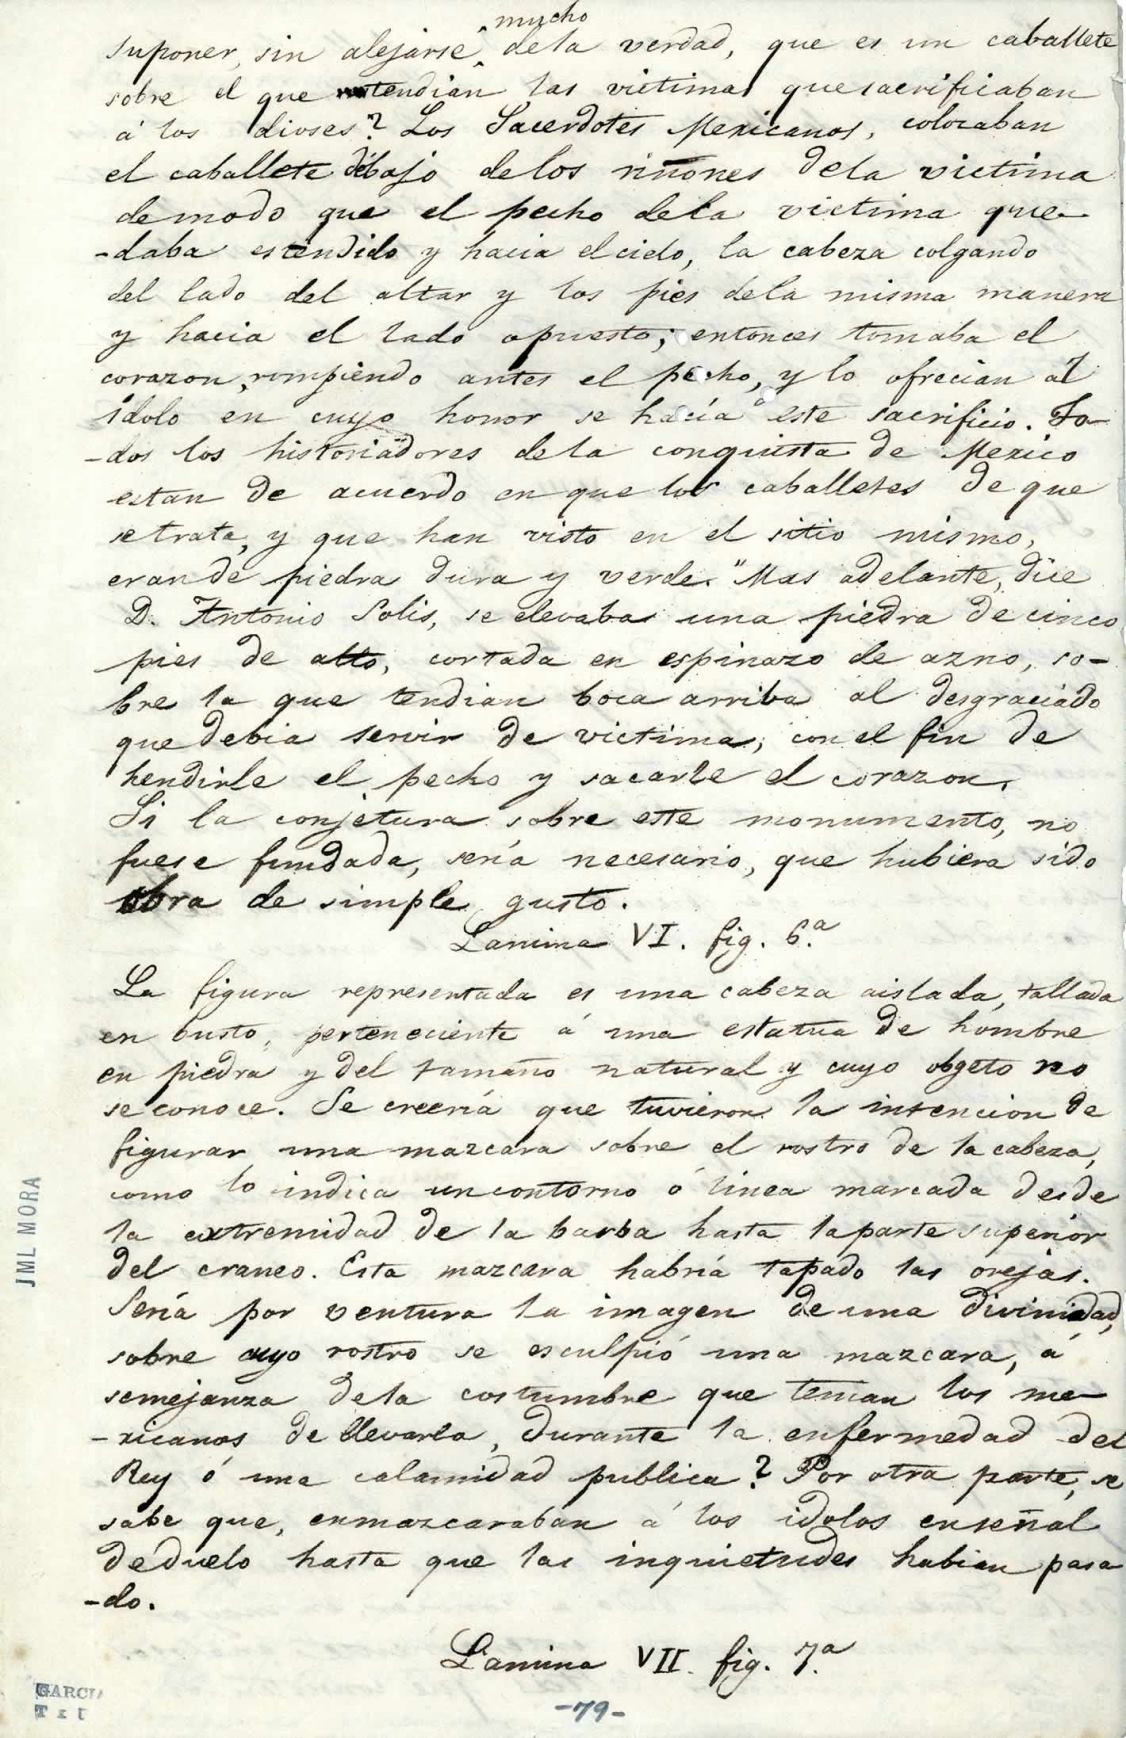 mucho
suponer, sin alejarse ^ de la verdad, que es un caballete
sobre el que tendian las victimas que sacrificaban
á los dioses? Los Sacerdotes Mexicanos, colocaban
el caballete debajo de los riñones dela victima
de modo que el pecho dela victima que-
-daba estendido y hacia el cielo, la cabeza colgando
del lado del altar y los pies dela misma manera
y hacia el lado opuesto; entonces tomaba el
corazon, rompiendo antes el pecho, y lo ofrecian al
idolo en cuyo honor se hacía este sacrificio. To-
-dos los historiadores dela conquista de Mexico
estan de acuerdo en que los caballetes de que
se trata, y que han visto en el sitio mismo,
eran de piedra dura y verde. "Mas adelante, dice
D. Antonio Solis, se elevaba una piedra de cinco
pies de alto, cortada en espinazo de azno, so-
bre la que tendian boca arriba al desgraciado
que debia servir de victima, con el fin de
hendirle el pecho y sacarle el corazon.
Si la conjetura sobre este monumento, no
fuese fundada, sería necesario, que hubiera sido
obra de simple gusto.
Lamina VI. fig. 6.ª
La figura representada es una cabeza aislada, tallada
en busto, perteneciente á una estatua de hombre
en piedra y del tamaño natural y cuyo obgeto no
se conoce. Se creería que tuvieron la intencion de
figurar una mazcara sobre el rostro de la cabeza,
como lo indica un contorno ó linea marcada desde
la extremidad de la barba hasta la parte superior
del craneo. Esta mazcara habría tapado las orejas.
Sería por ventura la imagen de una divinidad,
sobre cuyo rostro se esculpió una mazcara, á
semejanza dela costumbre que tenian los me-
-xicanos de llevarla, durante la enfermedad del
Rey ó una calamidad publica? Por otra parte, se
sabe que, enmazcaraban á los idolos en señal
de duelo hasta que las inquietudes habian pasa
-do.
Lamina VII. fig. 7.ª
-79-
JML MORA
GARCIA